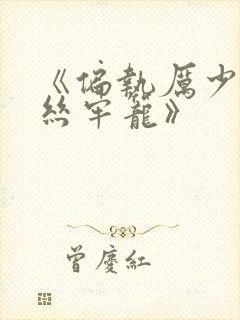 《偏執厲少
絲牢籠》
曾慶紅